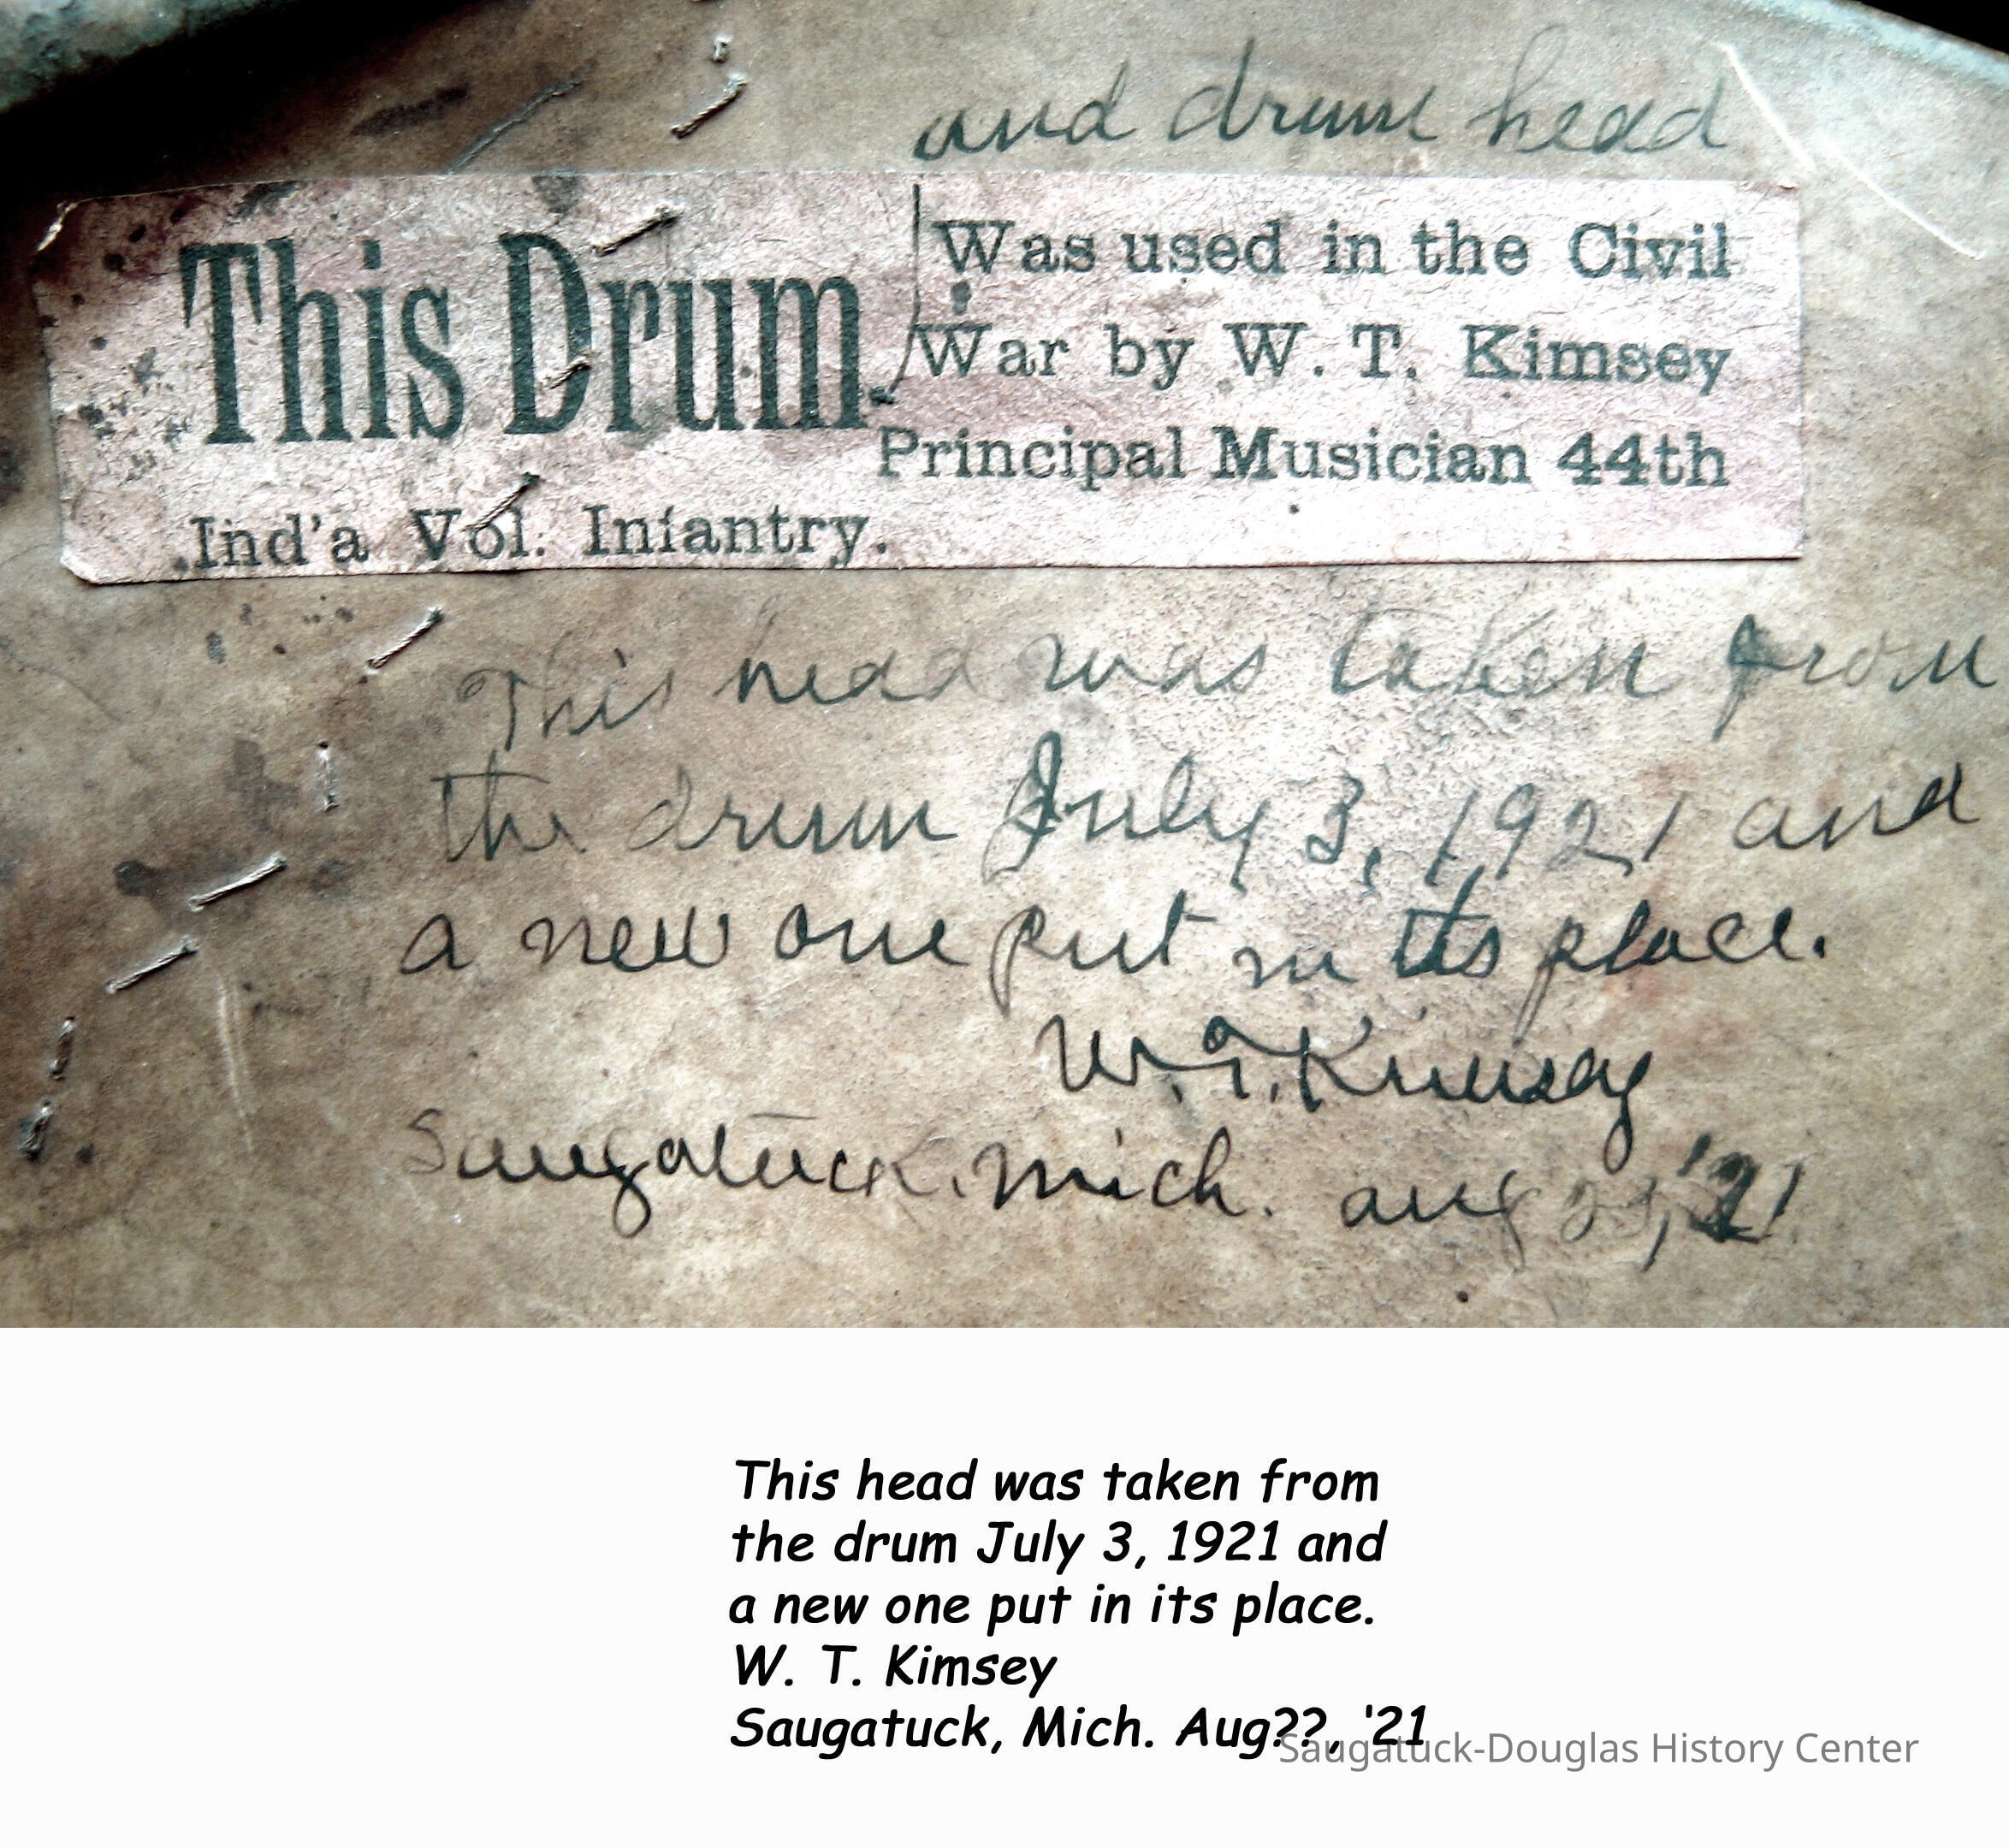 and drum head
This Drum Was used in the Civil
War by W. T. Kimsey
Principal Musician 44th
Ind'a Vol. Infantry.
This head was taken from
the drum July 3, 1921 and
a new one put in its place.
W. T. Kimsey
Saugatuck, Mich. Aug '21
This head was taken from
the drum July 3, 1921 and
a new one put in its place.
W. T. Kimsey
Saugatuck, Mich. Aug??, '21
Saugatuck-Douglas History Center